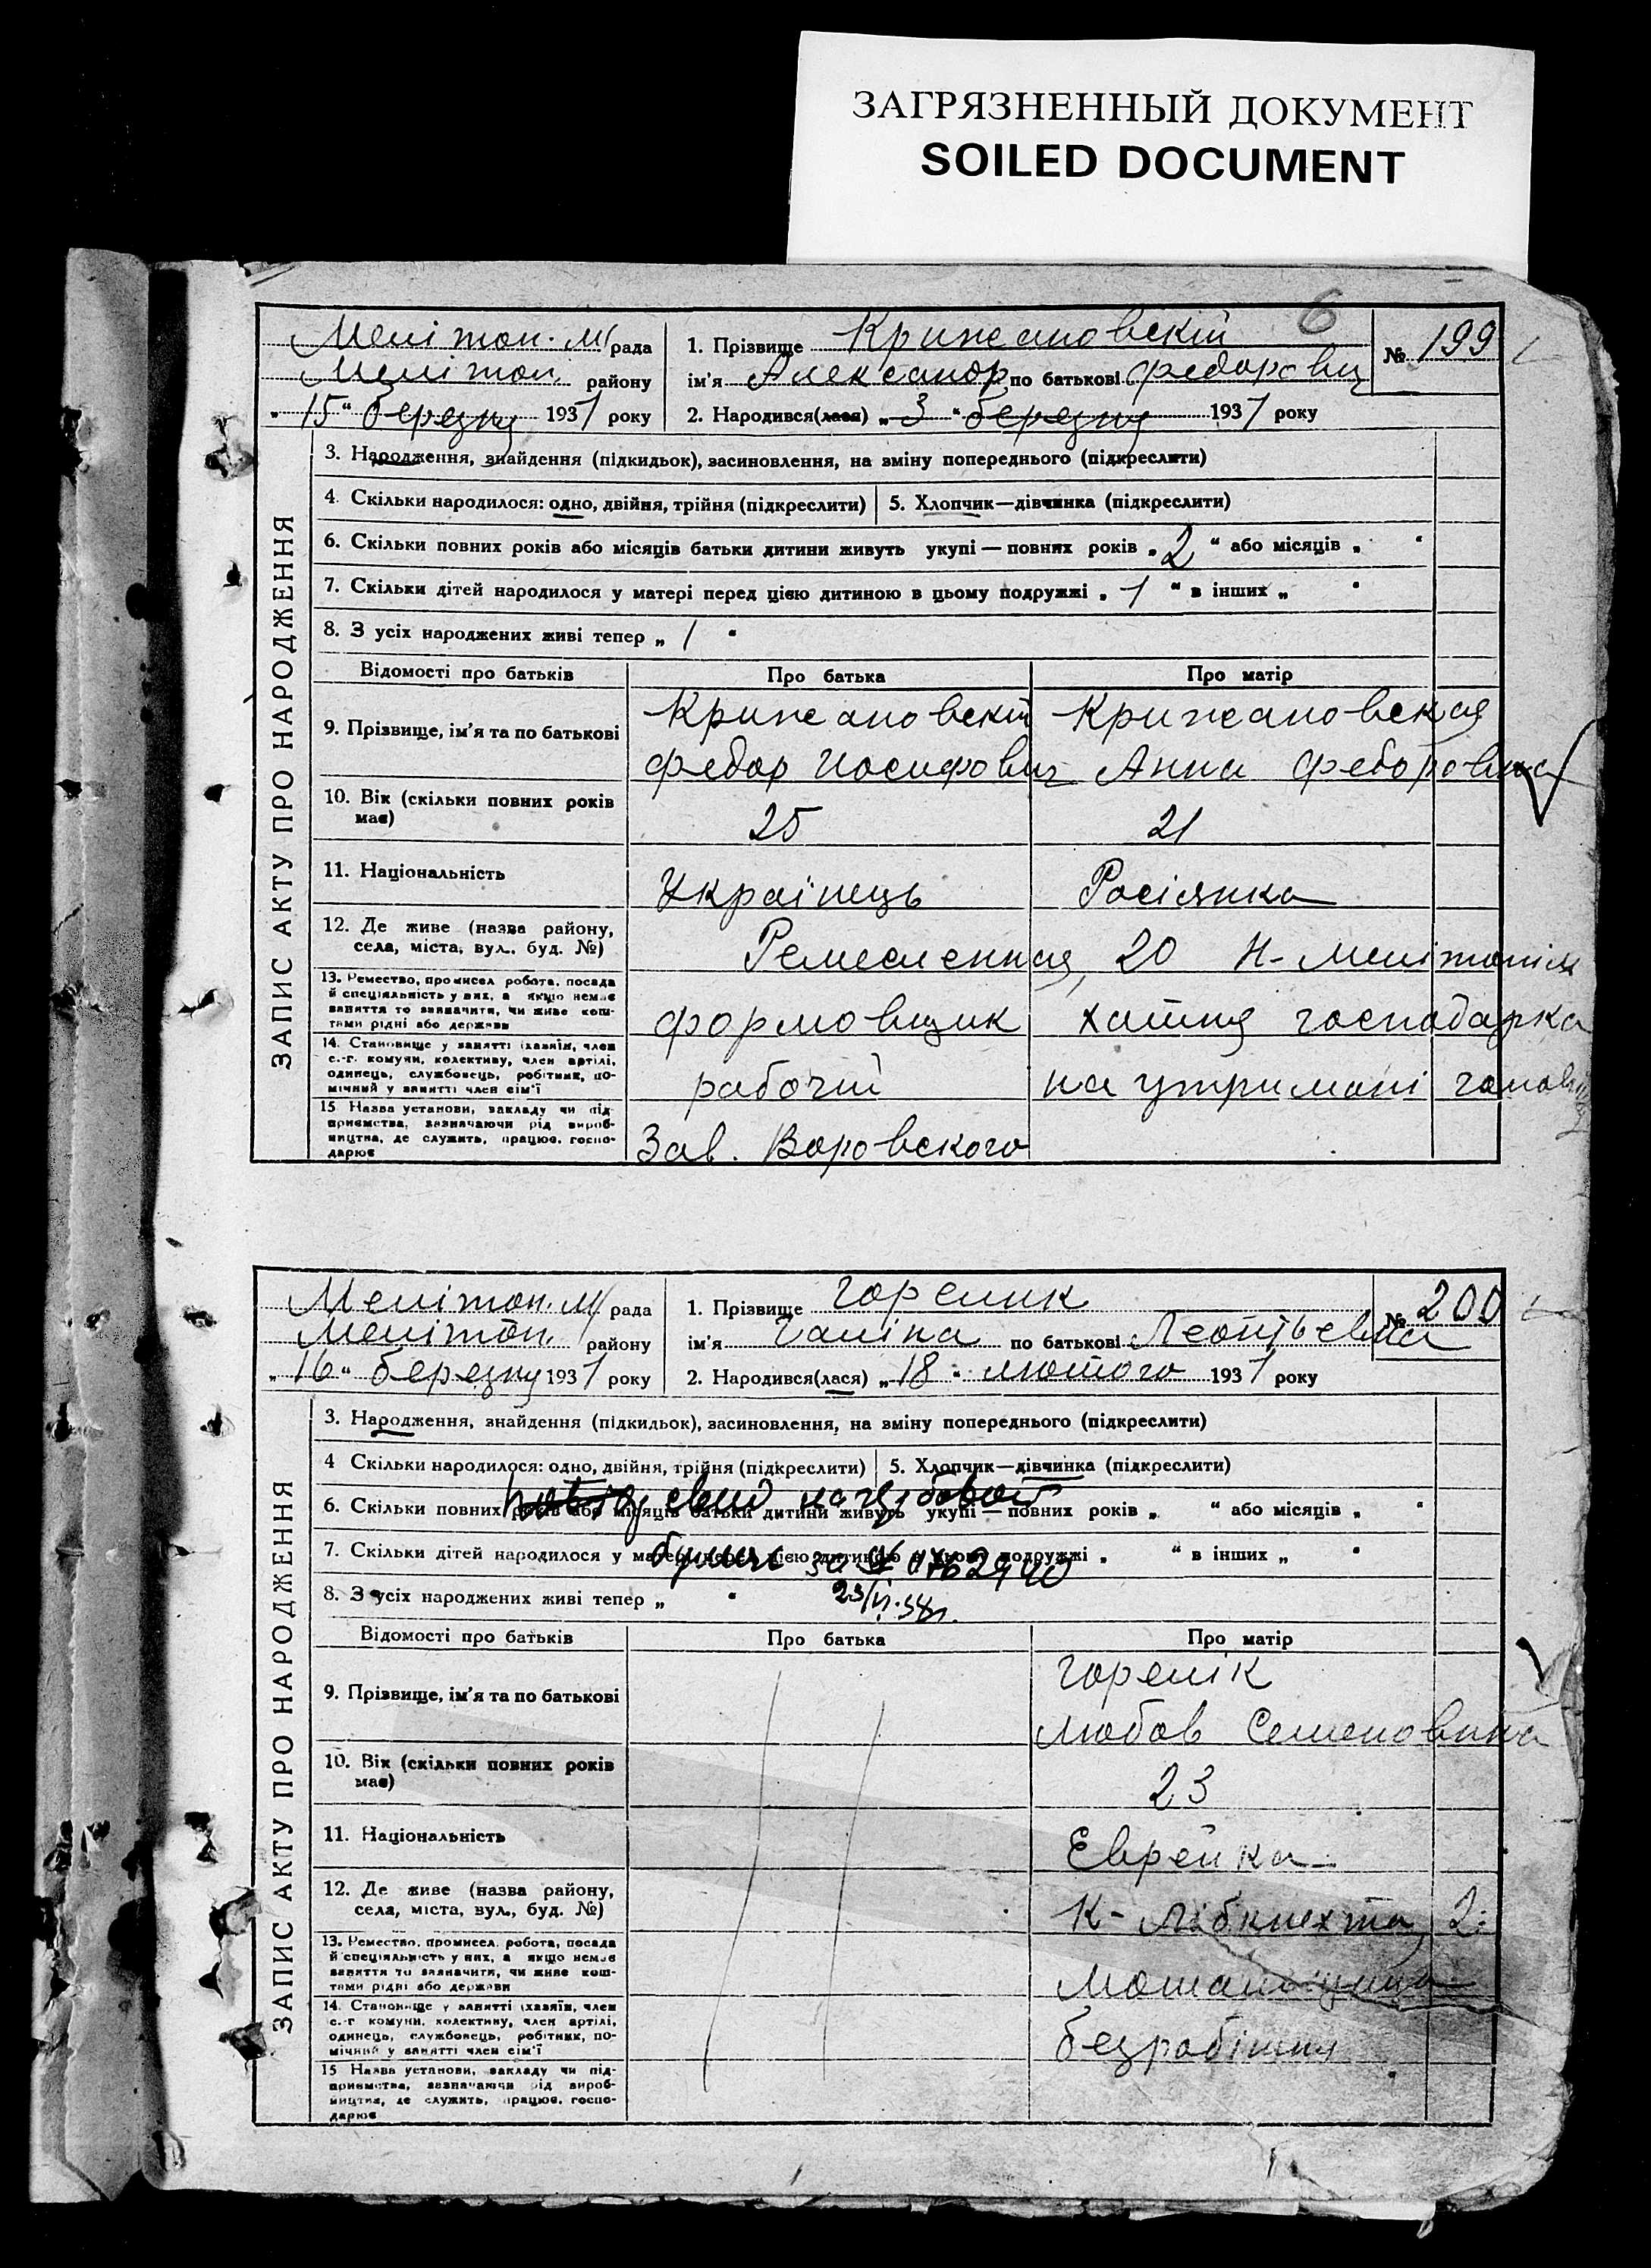 ЗАГРЯЗНЕННЫЙ ДОКУМЕНТ
SOILED DOCUMENT
6
ЗАПИС АКТУ ПРО НАРОДЖЕННЯ
Мелітоп. м/рада
Мелітоп. району
„15“ березня 1931 року
1. Прізвище Крижановскій
ім'я Александр по батькові Федорович
№ 199
2. Народився(лася) „3“ березня 1931 року
3. Народження, знайдення (підкидьок), засиновлення, на зміну попереднього (підкреслити)
4. Скільки народилося: одно, двійня, трійня (підкреслити)
5. Хлопчик—дівчинка (підкреслити)
6. Скільки повних років або місяців батьки дитини живуть укупі — повних років „2“ або місяців „ “
7. Скільки дітей народилося у матері перед цією дитиною в цьому подружжі „1“ в інших „ “
8. З усіх народжених живі тепер „1“
Відомості про батьків Про батька Про матір
9. Прізвище, ім'я та по батькові
Крижановскій Крижановская
Федор Иосифович Анна Федоровна
10. Вік (скільки повних років має)
25 21
11. Національність
Українець Росіянка
12. Де живе (назва району, села, міста, вул., буд. №)
Ремесленная, 20 Н-Мелітопіль
13. Ремество, промисел робота, посада й спеціяльність у них, а якщо немає заняття то зазначити, чи живе коштами рідні або держави
формовщик хатня господарка
14. Становище у занятті (хазяїн, член с.-г. комуни, колективу, член артілі, одинець, службовець, робітник, помічний у занятті член сім'ї
рабочій на утримані
15 Назва установи, закладу чи підприємства, зазначаючи рід виробництва, де служить, працює, господарює
Зав. Воровского
ЗАПИС АКТУ ПРО НАРОДЖЕННЯ
Мелітоп. м/рада
Мелітоп. району
„16“ березня 1931 року
1. Прізвище Горелик
ім'я Галіна по батькові Леонтьевна
№ 200
2. Народився(лася) „18“ лютого 1931 року
3. Народження, знайдення (підкидьок), засиновлення, на зміну попереднього (підкреслити)
4 Скільки народилося: одно, двійня, трійня (підкреслити)
5. Хлопчик—дівчинка (підкреслити)
6. Скільки повних років або місяців батьки дитини живуть укупі — повних років „ “ або місяців „ “
на гербовой
7. Скільки дітей народилося у матері перед цією дитиною в цьому подружжі „ “ в інших „ “
бумаге за №
8. З усіх народжених живі тепер „ “
Відомості про батьків Про батька Про матір
9. Прізвище, ім'я та по батькові
Горелік
Любов Семеновна
10. Вік (скільки повних років має)
23
11. Національність
Еврейка
12. Де живе (назва району, села, міста, вул., буд. №)
К-Лібкнехта, 2
13. Ремество, промисел, робота, посада й спеціяльність у них, а якщо немає заняття то зазначити, чи живе коштами рідні або держави
14. Становище у занятті (хазяїн, член с.-г. комуни, колективу, член артілі, одинець, службовець, робітник, помічний у занятті член сім'ї
безробітня
15 Назва установи, закладу чи підприємства, зазначаючи рід виробництва, де служить, працює, господарює